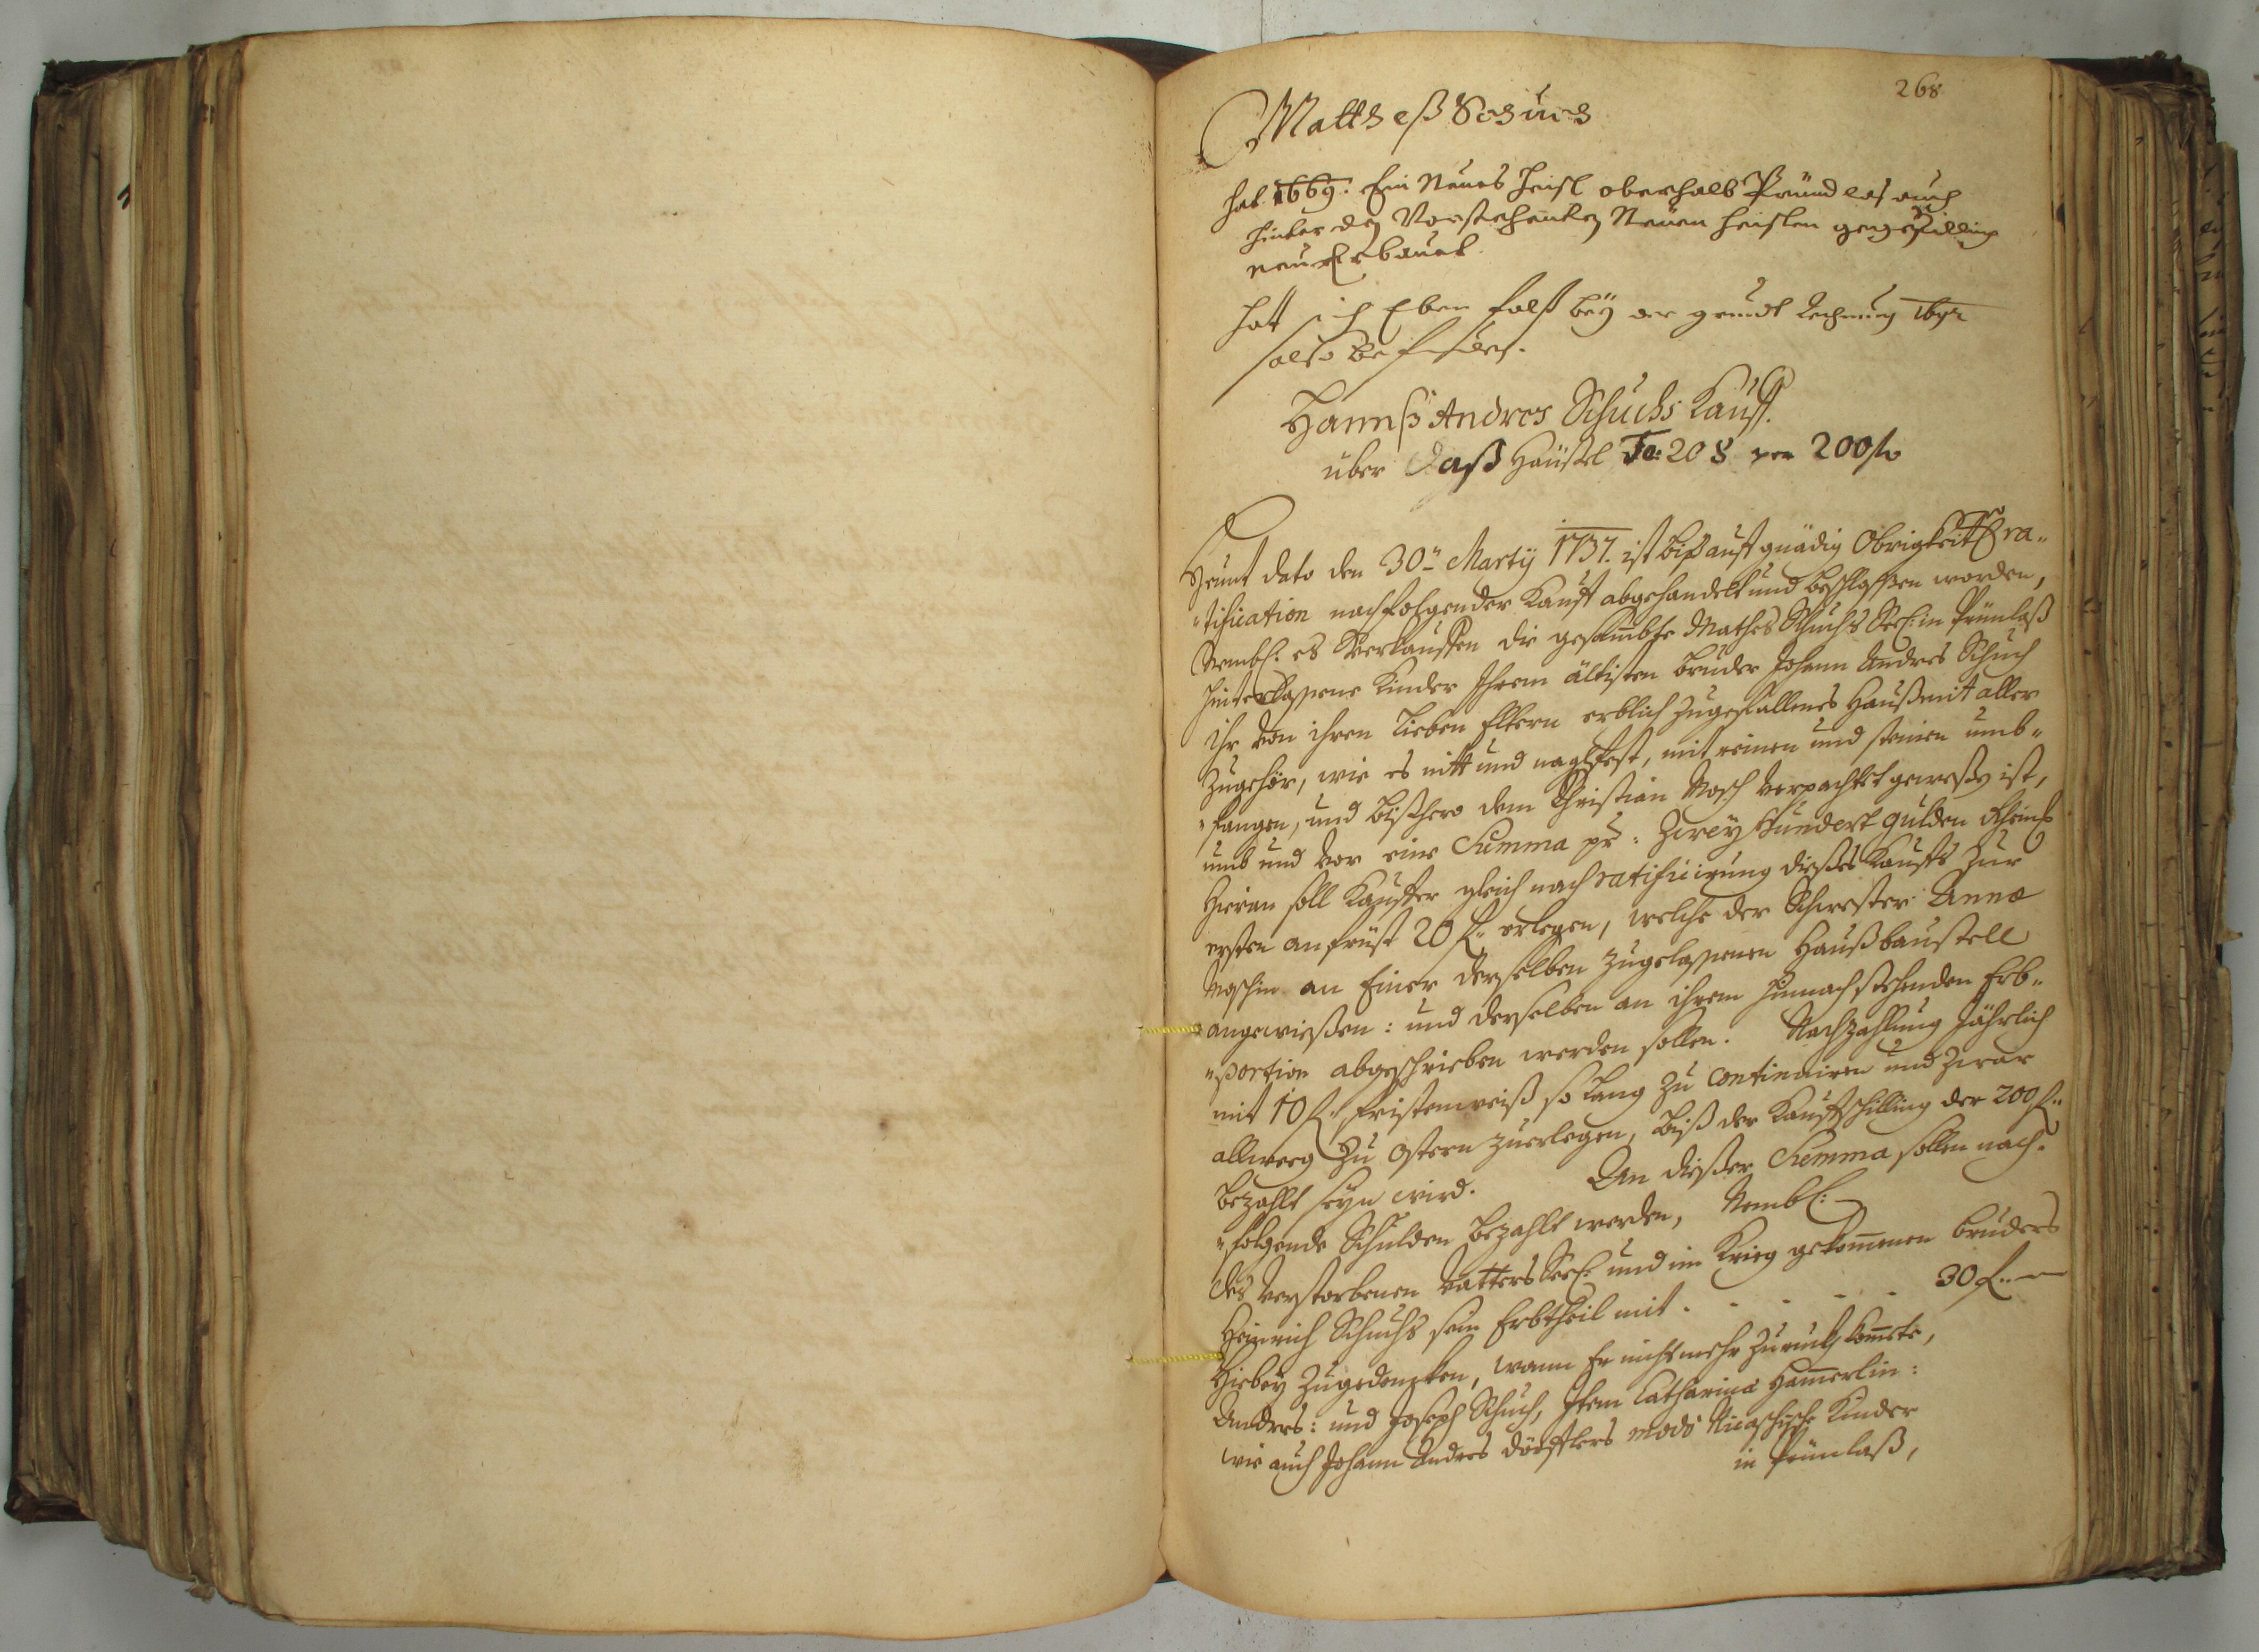 268
Mattheß Schuch
hat 1669. Ein Neues Heisl oberhalb Pründ los auch
hinter den Vorstehenden Neuen Heislen
neu Erbauet.
hatt sich Eben falß beÿ der grundt Rechnung 1692
also befunden.
Hannß Andres Schuchs Kauff.
über daß Häußel Fo: 208 per 200 fl
Heunt dato den 30ten Marty 1737. ist biß auff gnädig Obrigkeitl. ra-
-tification nachfolgender Kauff abgehandelt und beschlossen worden,
Nembl: es Verkauffen die gesambte Mathes Schuchs Seel: in Prünlaß
hinterlassene Kinder Ihrem ältisten Bruder Johann Andres Schuch
ihr von ihren Lieben Eltern erblich zugefallenes Hauß mit aller
Zugehör, wie es nitt und naglfest, mit reinen und steinen umb-
-fangen, und bißhero dem Christian Nasch verpachtet gewesen ist,
umb und vor eine Summa pr: Zweÿ Hundert gulden Rheinl.
Hieran soll Kauffer gleich nach ratificirung dießes Kauffs zur
ersten anfrist 20 fl. erlegen, welche der Schwester Anna
Naschin an Einer derselben zugelassenen Haußbaustell
angewießen: und derselben an ihrem hinnach stehenden Erb-
-portion abgeschrieben werden sollen. Nachzahlung Jährlich
mit 10 fl. fristenweiß so lang zu continuiren und zwar
allweeg zu Ostern zuerlegen, biß der Kauffschilling der 200 fl.
bezahlt seÿn wird. An dießer Summa sollen nach-
-folgende Schulden bezahlt werden, Nembl:
des verstorbenen Vatters Seel: und im Krieg gekommenen bruders
Heinrich Schuchs sein Erbtheil mit . . . . . 30 fl. —
Hiebeÿ zugedencken, wann Er nicht mehr zuruck komete,
Andres: und Joseph Schuch, Item Catharina Hamerlin:
wie auch Johann Andres Dörfflers modo Kinder
in Prünlaß,